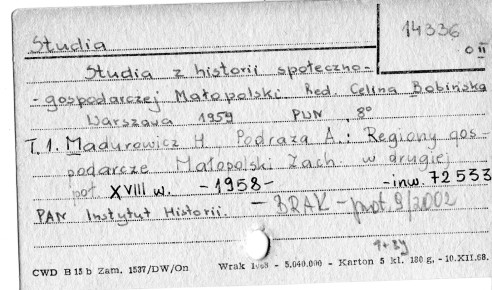 14336
O II
Studia
Studia z historii społeczno-
-gospodarczej Małopolski. Red. Celina Bobińska
Warszawa 1959 PWN, 8°
T. 1. Madurowicz H. Podraza A.: Regiony gos-
podarcze Małopolski Zach. w drugiej
poł. XVIII w. - 1958 - - inw. 72533
PAN Instytut Historii. - BRAK - prot. 9/2002
CWD B 15 b Zam. 1537/DW/On Wrak 1968 - 5.040.000 - Karton 5 kl. 180 g. - 10.XII.68.